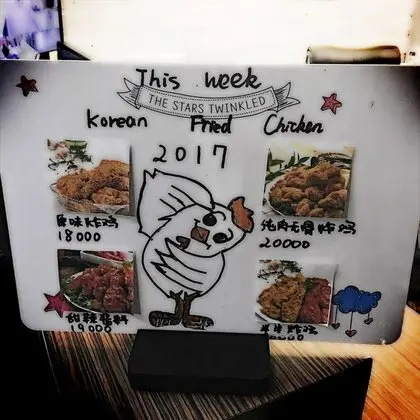 This week
THE STARS TWINKLED
Korean Fried Chicken
2017
原味炸鸡
18000
纯肉无骨炸鸡
20000
甜辣酱料
19000
半半炸鸡